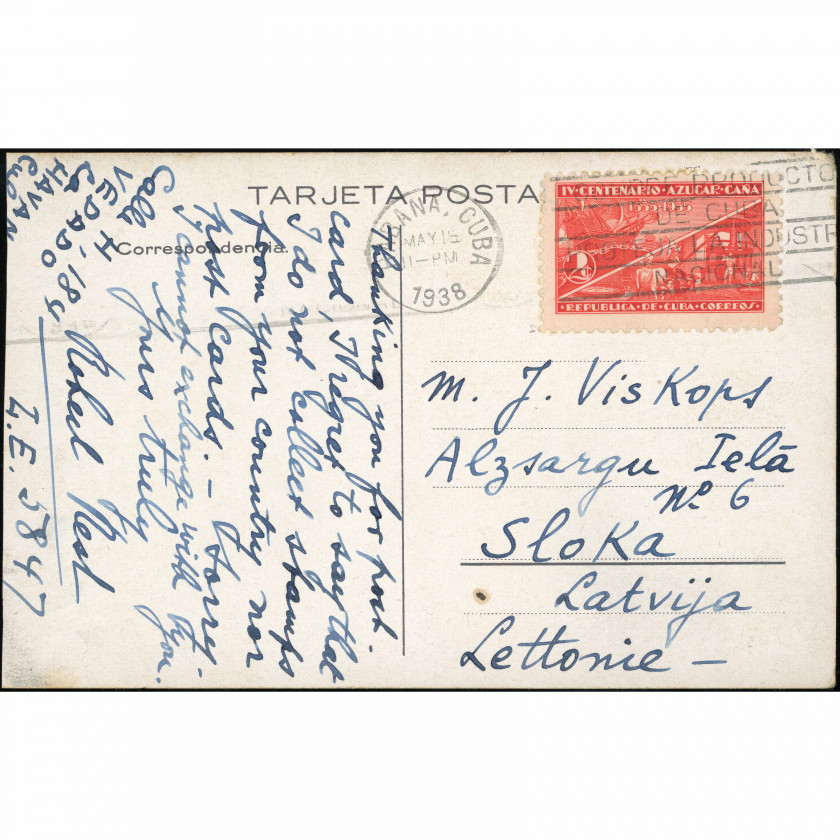 TARJETA POSTA
Correspondencia.
HABANA, CUBA
MAY 15
11-PM
1938
IV·CENTENARIO·AZUCAR·CAÑA
1535-1935
2
·REPUBLICA·DE·CUBA·CORREOS·
PRODUCTO
DE CUBA
LA INDUSTR
NACIONAL
Thanking you for post-
card, I regret to say that
I do not collect stamps
from your country nor
post cards. — Sorry
I cannot exchange with you.
Yours truly
Calle
VEDADO
HAVAN
I.E. 5847
M. J. Viskops
Alzsargu Ielā
No. 6
Sloka
Latvija
Lettonie –